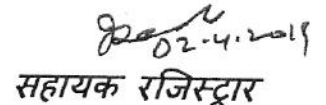 02.4.2019
सहायक रजिस्ट्रार